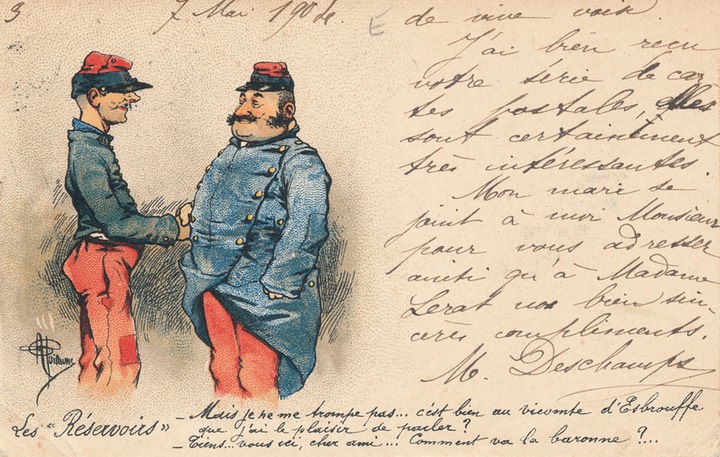 3
7 Mai 190
E
de vive voix.
J'ai bien reçu
votre série de car
tes postales, elles
sont certainement
très intéressantes.
Mon mari se
joint à moi Monsieur
pour vous adresser
ainsi qu'à Madame
Lerat nos bien sin-
cères compliments.
M. Deschamps
A Guillaume
Les "Réservoirs"
– Mais je ne me trompe pas... c'est bien au vicomte d'Esbrouffe
que j'ai le plaisir de parler ?
– Tiens... vous ici, cher ami... Comment va la baronne ?....